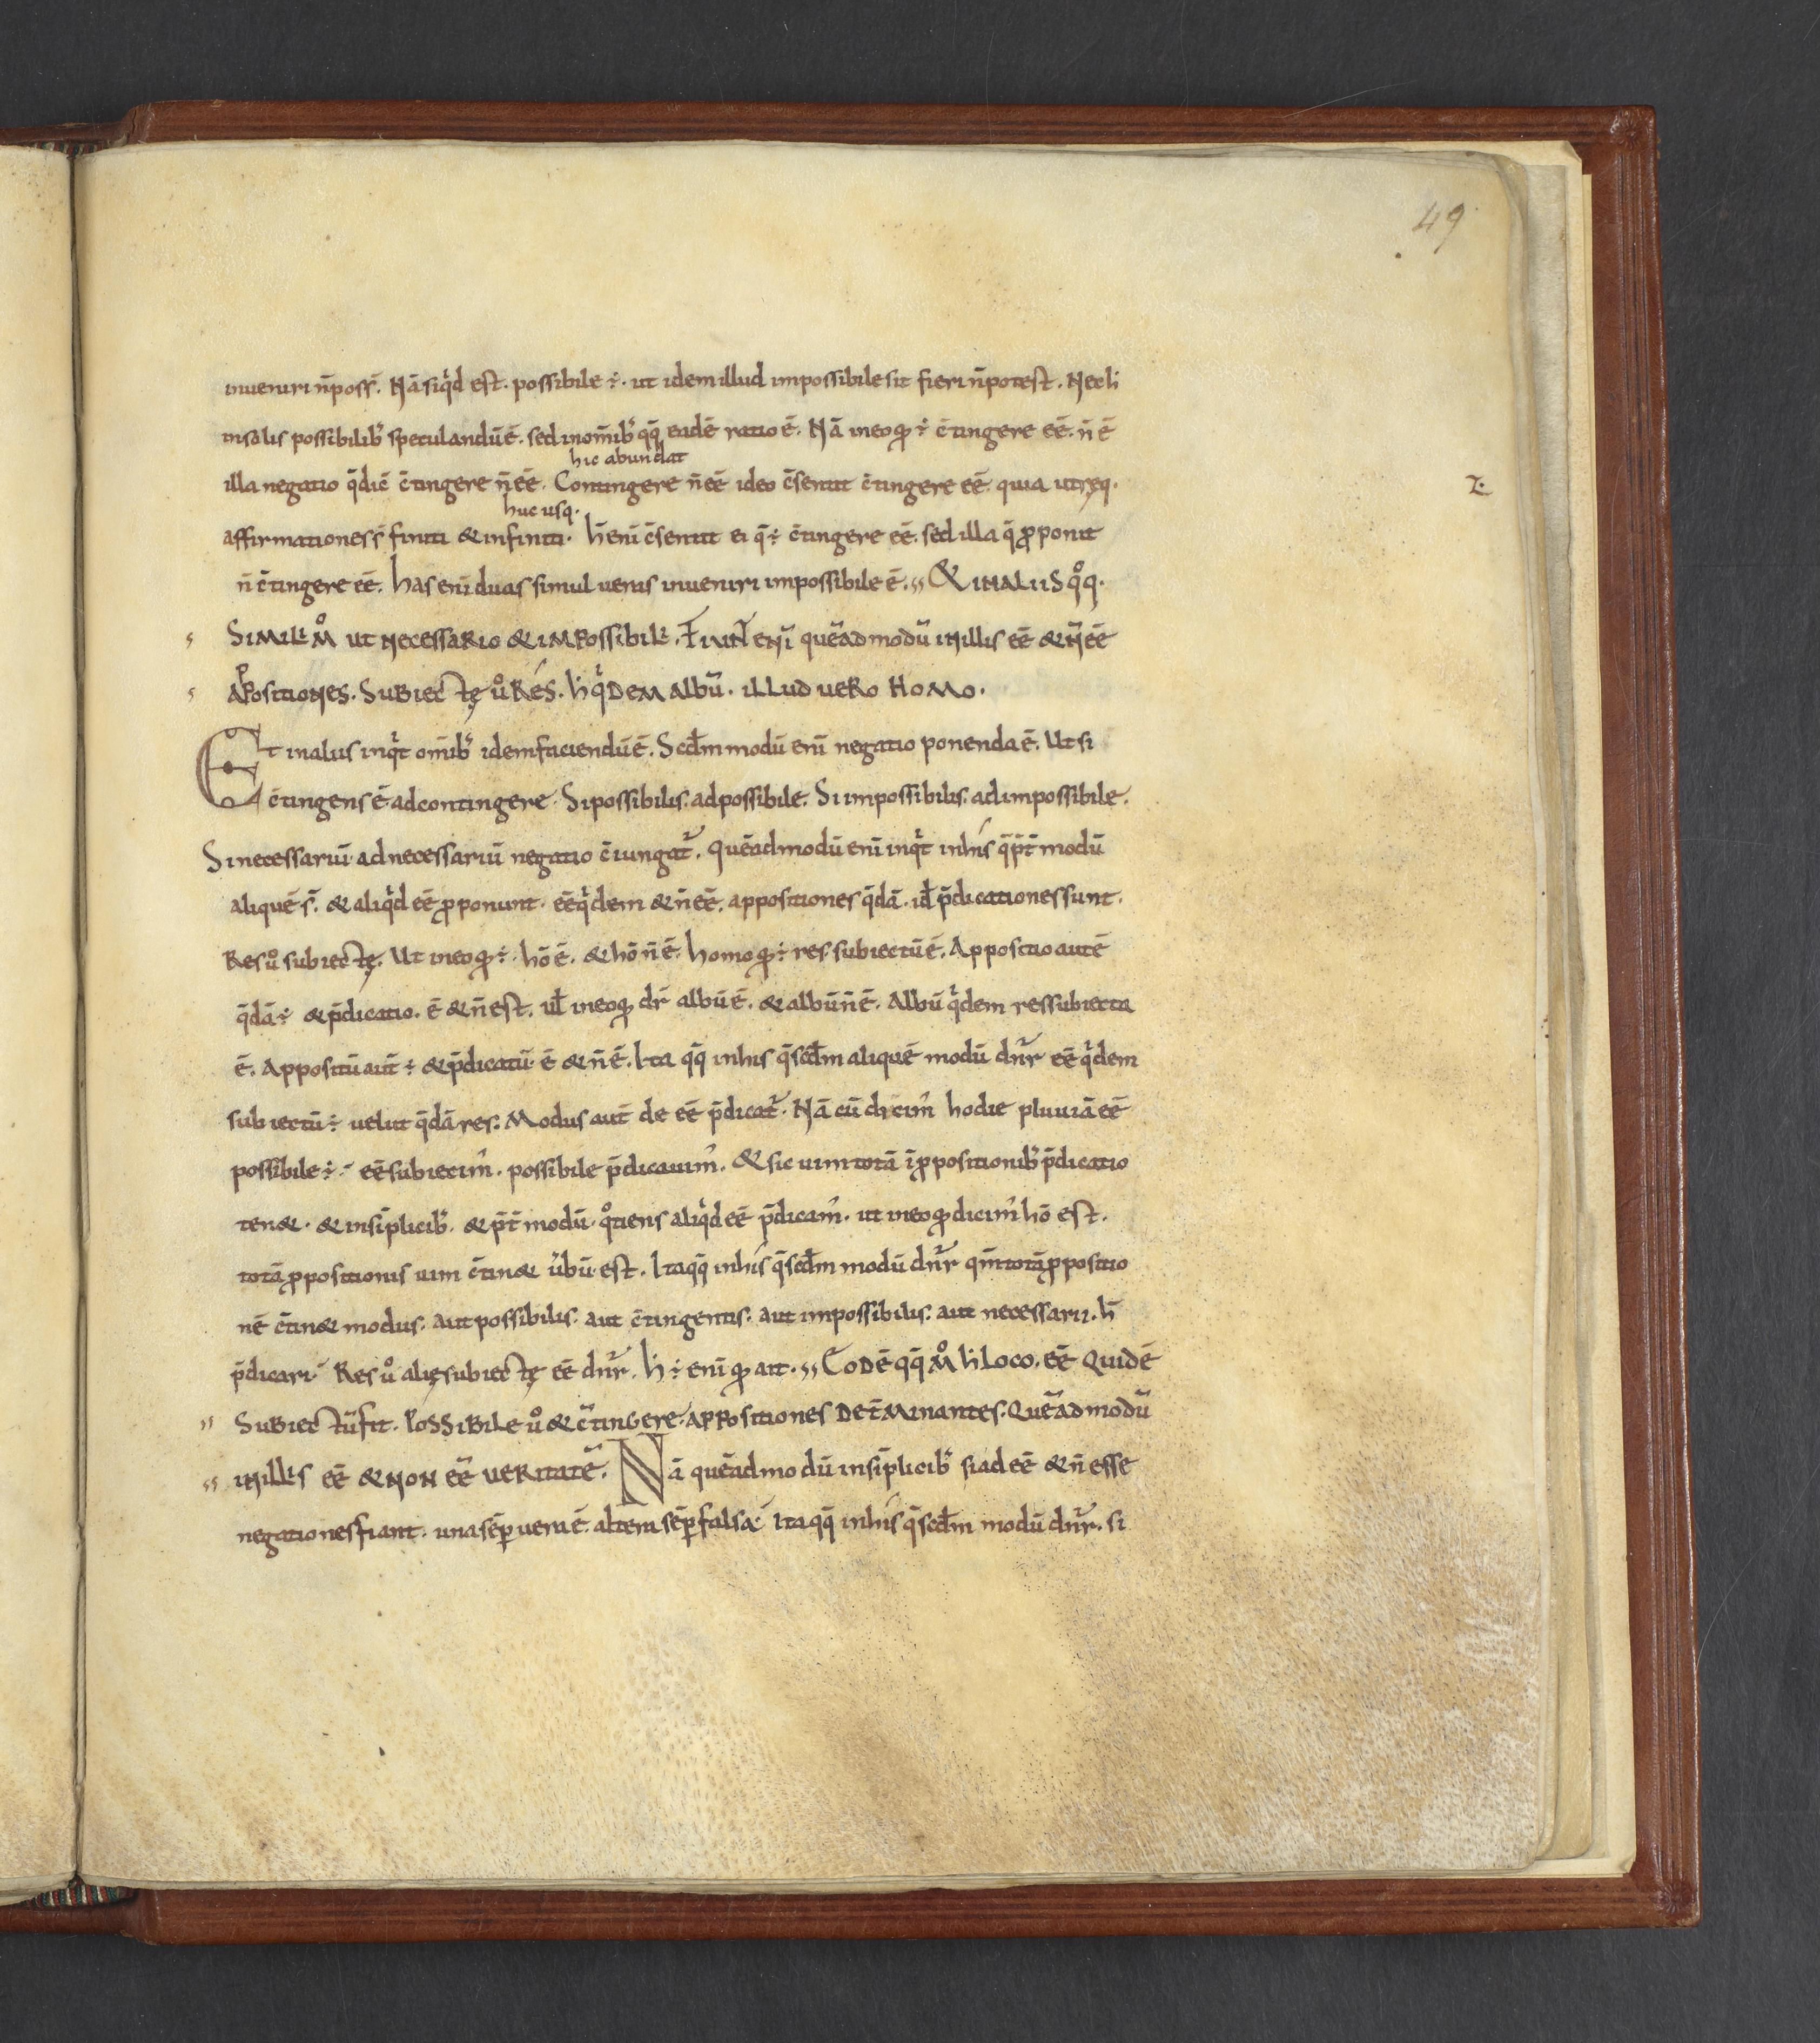 49
inueniri n̄ poss̄. Nā siqͥd est. possibile ÷. ut idem illud impossibile sit fieri n̄ potest. Nec h̓
in solis possibilib; speculandū ē. sed in om̄ib; qq̄ eadē ratio ē. Nā in eo qđ ÷ c̄tingere eē. n̄ ē
hic abundat
illa negatio q̄ dic̄ c̄tingere n̄ eē. Contingere n̄ eē ideo c̄sentit c̄tingere eē. quia utręq.
huc usq.
affirmationes s̄ finiti & infiniti. h̄ eni c̄sentit ei q̄ ÷ c̄tingere eē. sed illa q̄ ꝓponit
n̄ c̄tingere eē. has eni duas simul ueras inueniri impossibile ē. & in aliis qͦq.
Simili mͦ ut necessario & impossibili. Fiunt enī quēadmodū in illis eē & n̄ eē
apositiones. Subiectę uͦ res. h̓ qͥdem albū. illud uero homo.
Et in aliis inqͥt om̄ib; idem faciendū ē. Scd̄m modū eni negatio ponenda ē. Ut si
c̄tingens ē ad contingere. Si possibilis. ad possibile. Si impossibilis. ad impossibile.
Si necessariū ad necessariū negatio c̄iungat᷑. Quēadmodū eni inqͥt in his q̄ p̄t̄ modū
aliquē s̄. & aliqͥd eē ꝓponunt. eē qͥdem & n̄ eē. appositiones q̄dā. id̄ p̄dicationes sunt.
Res uͦ subiectę. Ut in eo qđ ÷ hō ē. & hō n̄ ē. homo qđ ÷ res subiectū ē. Appositio autē
q̄dā ÷ & p̄dicatio. ē & n̄ est. ul̄ in eo qđ dr̄ albū ē. & albū n̄ ē. Albū qͥdem res subiecta
ē. Appositū aut̄ ÷ & p̄dicatū ē & n̄ ē. Ita qq̄ in his q̄ scd̄m aliquē modū dn̄r eē qͥdem
subiectū ÷ uelut q̄dā res: Modus aut̄ de eē p̄dicat᷑. Nā cū dicim᾽ hodie pluuiā eē
possibile ÷ eē subiecim᾽. possibile p̄dicauim᾽. & sic uim totā ī ꝓpositionib; p̄dicatio
ten&. & in siplicib;. & p̄t̄ modū. qͦtiens aliqͥd eē p̄dicam᾽. ut in eo qđ dicim᾽ hō est.
totā ꝓpositionis uim c̄tin& u̓bū est. Ita qq̄ in his q̄ scd̄m modū dn̄r qm̄ totā ꝓpositio
nē c̄tin& modus. aut possibilis. aut c̄tingentis. aut impossibilis. aut necessarii. h̄
p̄dicari. Res uͦ alię subiectę eē dn̄r. h̓ ÷ eni qđ ait. Eodē qq̄ mͦ h̓ loco. eē quidē
Subiectū fit. Possibile uͦ & c̄tingere. appositiones det̄minantes. quēadmodū
in illis eē & non eē ueritatē. Nā quēadmodū in siplicib; si ad eē & n̄ esse
negationes fiant. una sēp uera ē. altera sēp falsa. Ita qq̄ in his q̄ scd̄m modū dn̄r. si